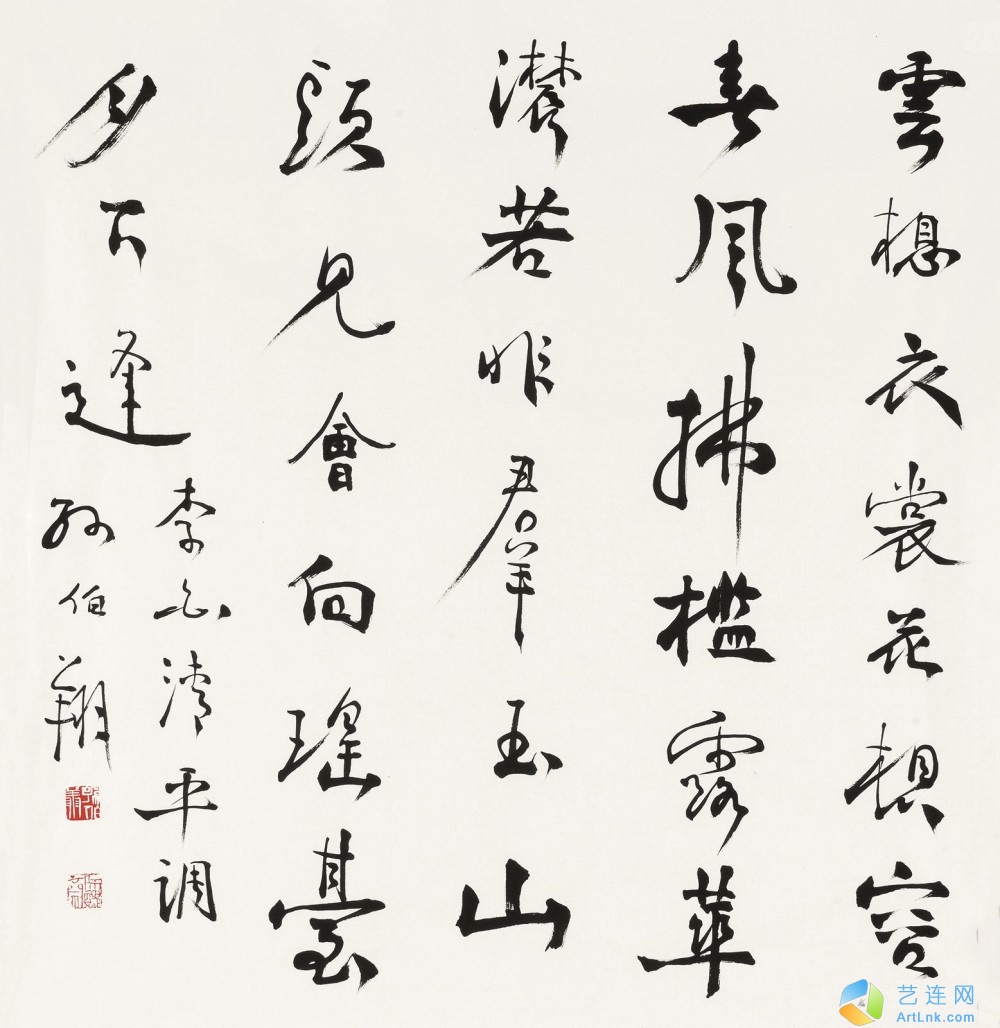 雲想衣裳花想容
春風拂檻露華
濃若非羣玉山
頭見會向瑤臺
月下逢
李白清平調
孫伯翔
艺连网
ArtLnk.com